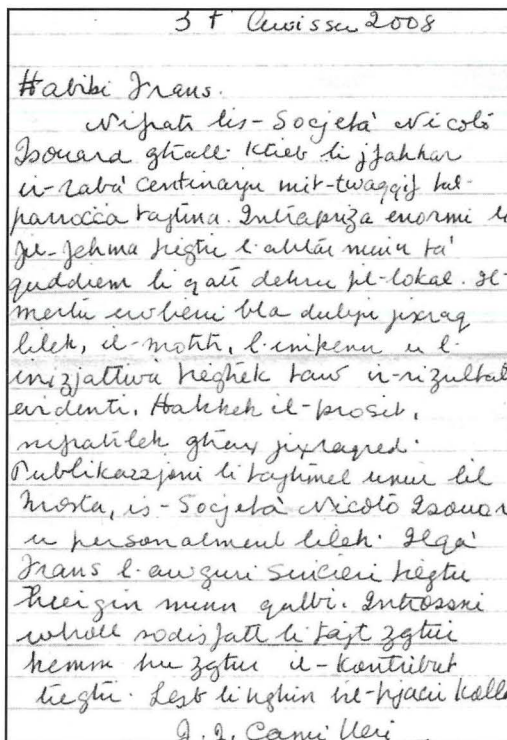 3 t' Awissu 2008
Ħabibi Frans.
Nifraħ lis-Socjetà Nicolò
Isouard għall-ktieb li jfakkar
ir-raba' centinarju mit-twaqqif tal-
parroċċa tagħna. Intrapriża enormi li
fil-fehma tiegħi minn ta'
quddiem li qatt dehru fil-lokal. Il-
mertu ewlieni bla dubju jixraq
lilek, il-moħħ, u l-
inizjattiva tiegħek taw ir-rizultat
evidenti. Ħaqqek il-prosit,
nifraħlek għax
Pubblikazzjoni li tagħmel unur lil
Mosta, is-Socjetà Nicolò Isouar
u personalment lilek. Ilqa'
Frans l-awguri sinċieri tiegħi
ħerġin minn qalbi. Inħossni
wkoll sodisfatt li tajt żgħir
kemm hu żgħir il-kontribut
tiegħi. Lest li nghin bil-pjaċir koll
J. J. Camilleri